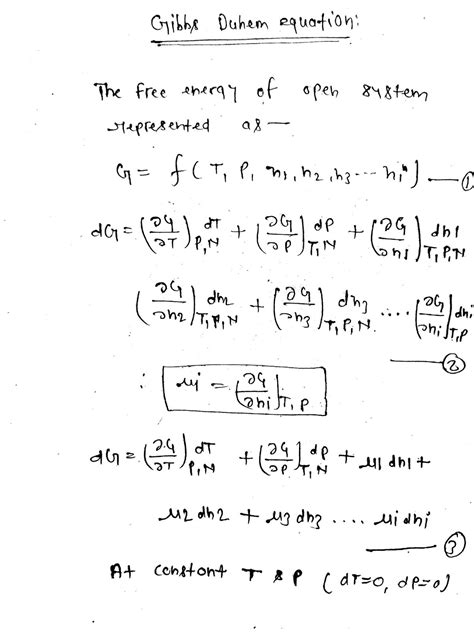 Gibbs Duhem equation:
The free energy of open system
represented as —
G = f ( T, P, n1, n2, n3 ... ni ) — ①
dG = (∂G/∂T)P,N dT + (∂G/∂P)T,N dP + (∂G/∂n1)T,P,N dn1
(∂G/∂n2)T,P,N dn2 + (∂G/∂n3)T,P,N dn3 .... (∂G/∂ni)T,P dni
— ②
: μi = (∂G/∂ni)T,P
dG = (∂G/∂T)P,N dT + (∂G/∂P)T,N dP + μ1 dn1 +
μ2 dn2 + μ3 dn3 .... μi dni
— ③
At constant T & P ( dT=0, dP=0)